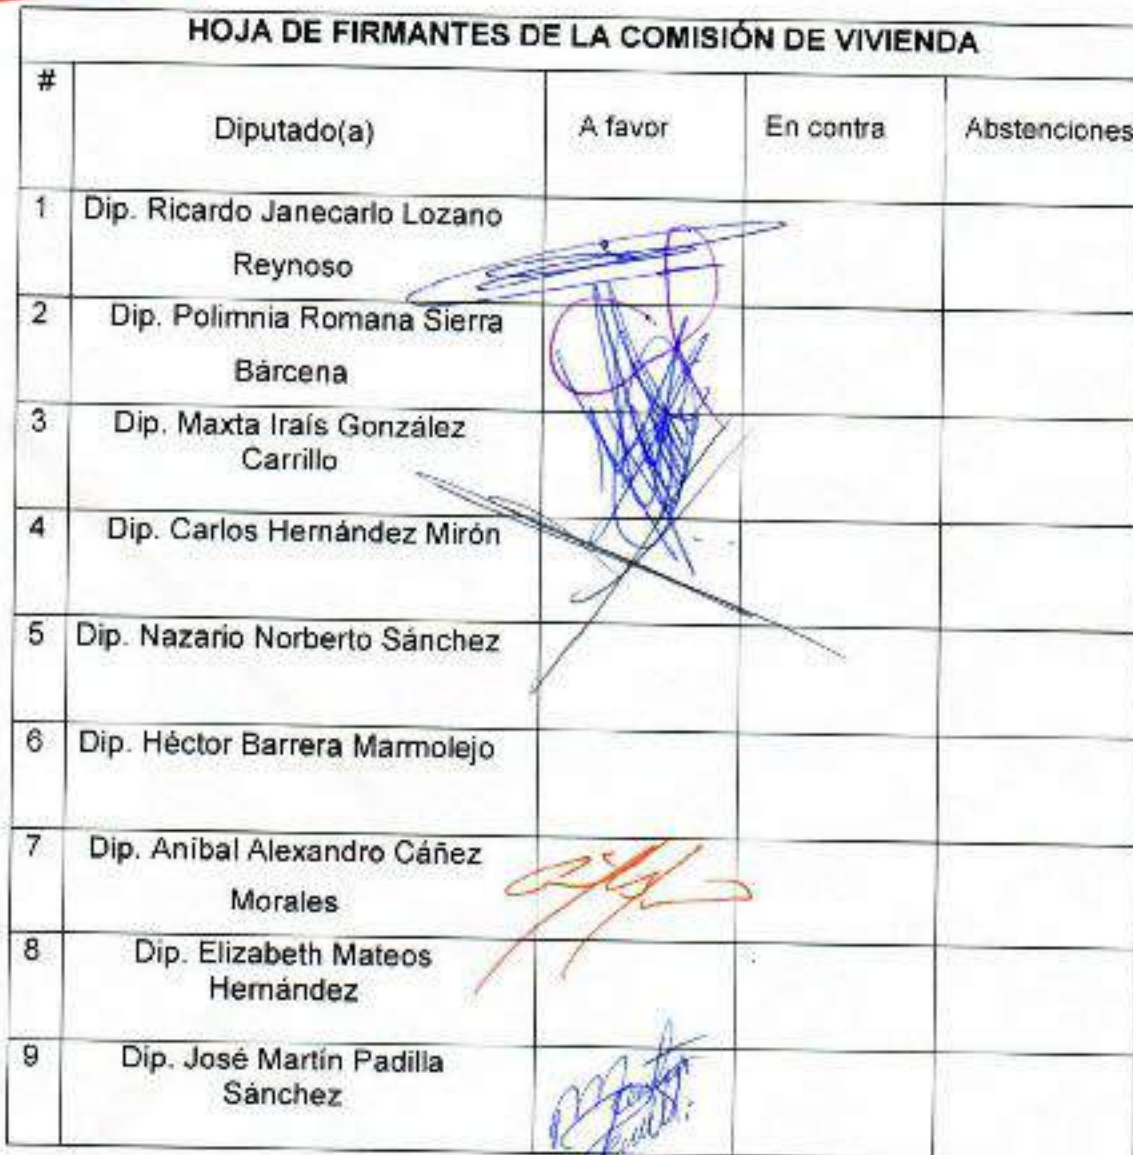 HOJA DE FIRMANTES DE LA COMISIÓN DE VIVIENDA
#
Diputado(a) A favor En contra Abstenciones
1 Dip. Ricardo Janecarlo Lozano
Reynoso
2 Dip. Polimnia Romana Sierra
Bárcena
3 Dip. Maxta Iraís González
Carrillo
4 Dip. Carlos Hernández Mirón
5 Dip. Nazario Norberto Sánchez
6 Dip. Héctor Barrera Marmolejo
7 Dip. Aníbal Alexandro Cáñez
Morales
8 Dip. Elizabeth Mateos
Hernández
9 Dip. José Martín Padilla
Sánchez